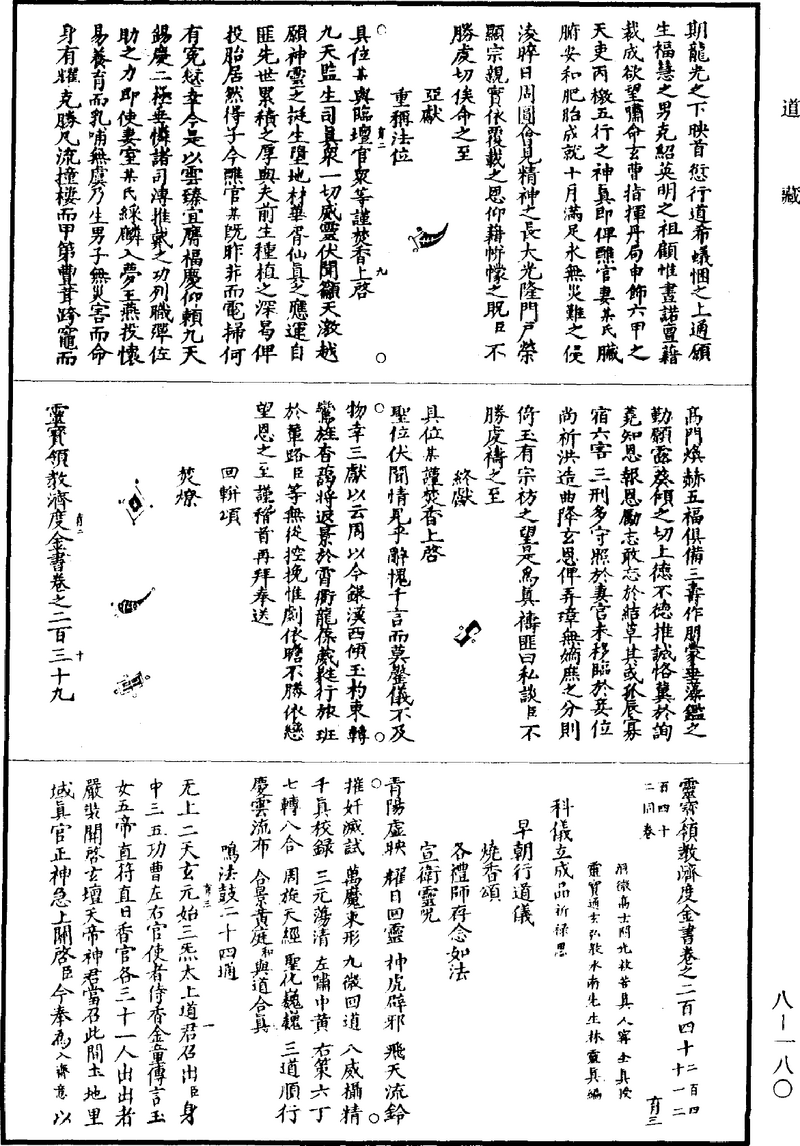 道藏
期龍光之下映首愆行道希蟻悃之上通願
生福慧之男克紹英明之祖顧惟晝諾亶藉
裁成欲望嘯命玄曹指揮丹局申飭六甲之
天吏丙檄五行之神真即俾醮官妻某氏臟
腑安和肥胎成就十月滿足永無災難之侵
淩晬日周圓俗見精神之長大光隆門戶榮
顯宗親實依覆載之恩仰藉帡幪之貺臣不
勝虔切俟命之至
亞獻
重稱法位
具位某與臨壇官衆等謹焚香上啓
九天監生司真衆一切威靈伏聞籲天激越
願神靈之挺生墮地材華胥仙真之應運自
匪先世累積之厚與夫前生種植之深曷俾
投胎居然得子今醮官某既昨非而電掃何
有冤愆幸今是以雲臻宜膺福慶仰賴九天
錫慶二極垂憐諸司溥推戴之功列職殫佐
助之力即使妻室某氏綵麟入夢玉燕投懷
易養育而乳哺無虞乃生男子無災害而命
身有耀克勝凡流撞樓而甲第曹茸跨竈而
高門煥赫五福俱備三壽作朋蒙垂藻鑑之
勤願露葵傾之切上德不德推誠恪冀於詢
蕘知恩報恩勵志敢忘於結草其或孤辰寡
宿六害三刑多守照於妻宮未移臨於妾位
尚祈洪造曲降玄恩俾弄璋無嫡庶之分則
倚玉有宗祊之望是爲真禱匪曰私談臣不
勝虔禱之至
終獻
具位某謹焚香上啓
聖位伏聞情見乎辭愧千言而莫罄儀不及
物幸三獻以云周以今銀漢西傾玉杓東轉
鸞旌杳藹將返景於霄衢龍葆葳蕤行旅班
於輦路臣等無從控挽惟劇依瞻不勝依戀
望恩之至謹稽首再拜奉送
回軿頌
焚燎
靈寶領教濟度金書卷之二百三十九
靈寶領教濟度金書卷之二百四十 二百四十一二百四十二同卷 育三
洞微高士開光救苦真人甯全真授
靈寶通玄弘教水南先生林靈真編
科儀立成品 祈祿恩
早朝行道儀
燒香頌
各禮師存念如法
宣衛靈咒
青陽虛映 耀日回靈 神虎辟邪 飛天流鈴
摧奸滅試 萬魔束形 九微回道 八威攝精
千真校錄 三元蕩清 左嘯中黃 右策六丁
七轉八合 周旋天經 聖化巍巍 三道順行
慶雲流布 合景黃庭 和與道合真
鳴法鼓二十四通
无上三天玄元始三炁太上道君召出臣身
中三五功曹左右官使者侍香金童傳言玉
女五帝直符直日香官各三十一人出出者
嚴裝關啓玄壇天帝神君當召此間土地里
域真官正神急上關啓臣今奉爲入齋意以
八—一八〇